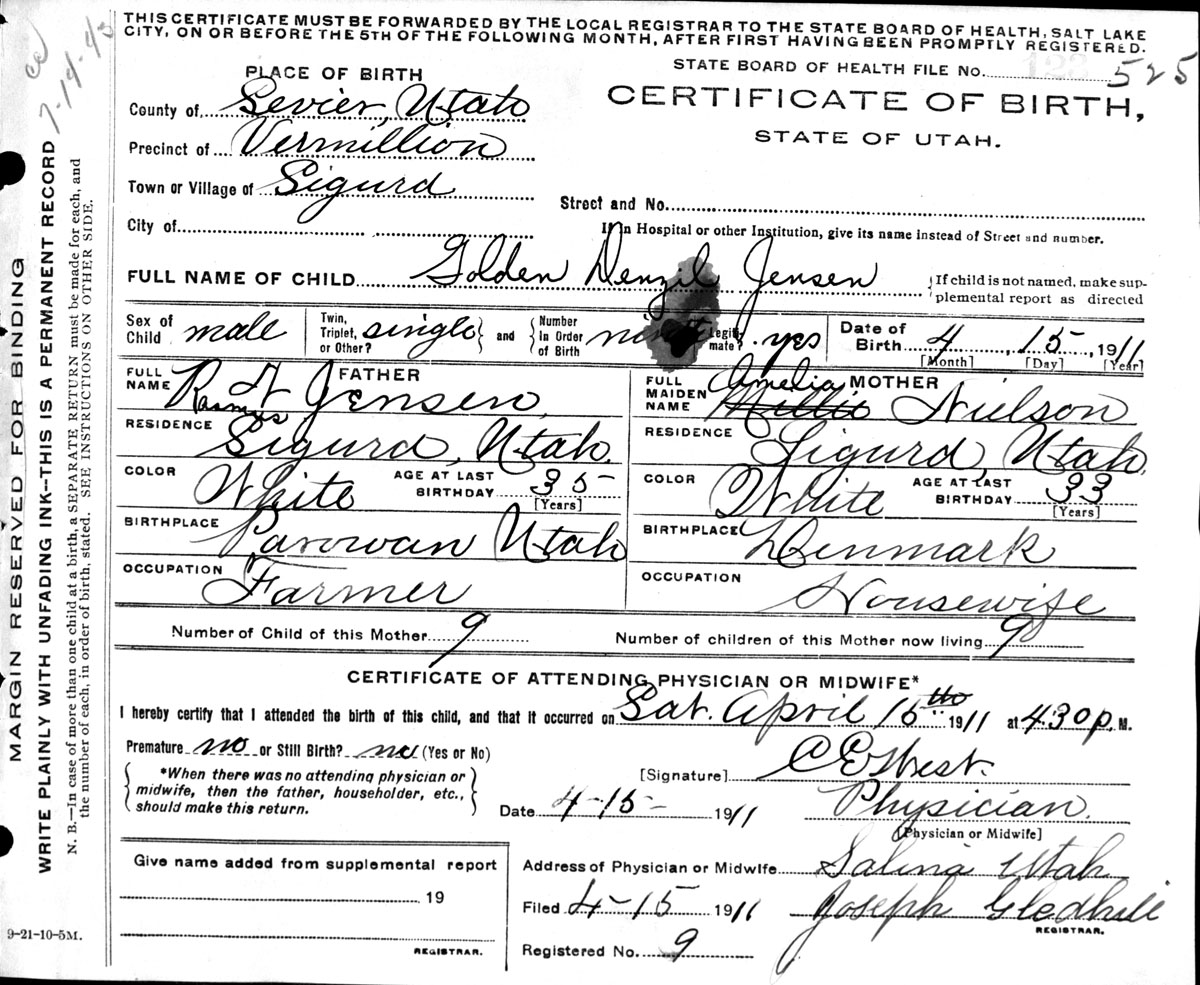 THIS CERTIFICATE MUST BE FORWARDED BY THE LOCAL REGISTRAR TO THE STATE BOARD OF HEALTH, SALT LAKE
CITY, ON OR BEFORE THE 5TH OF THE FOLLOWING MONTH, AFTER FIRST HAVING BEEN PROMPTLY REGISTERED.
7-14-43
STATE BOARD OF HEALTH FILE NO. 525
CERTIFICATE OF BIRTH,
STATE OF UTAH.
PLACE OF BIRTH
County of Sevier, Utah
Precinct of Vermillion
Town or Village of Sigurd
Street and No.
City of
If in Hospital or other Institution, give its name instead of Street and number.
FULL NAME OF CHILD Golden Denzil Jensen
If child is not named, make sup-
plemental report as directed
Sex of Child male Twin, Triplet, or Other? single and Number In Order of Birth Legiti- mate? yes Date of Birth 4, 15, 1911
[Month] [Day] [Year]
FATHER
FULL NAME R N Jensen,
Rasmus
RESIDENCE Sigurd, Utah.
COLOR White AGE AT LAST BIRTHDAY 35 [Years]
BIRTHPLACE Parowan Utah
OCCUPATION Farmer
MOTHER
FULL MAIDEN NAME Amelia Millie Nielson
RESIDENCE Sigurd, Utah.
COLOR White AGE AT LAST BIRTHDAY 33 [Years]
BIRTHPLACE Denmark
OCCUPATION Housewife
Number of Child of this Mother 9 Number of children of this Mother now living 9
CERTIFICATE OF ATTENDING PHYSICIAN OR MIDWIFE*
I hereby certify that I attended the birth of this child, and that it occurred on Sat. April 15th 1911 at 4.30 p. M.
Premature no or Still Birth? no (Yes or No)
*When there was no attending physician or
midwife, then the father, householder, etc.,
should make this return.
[Signature] C E West.
Date 4-15- 1911 Physician.
[Physician or Midwife]
Give name added from supplemental report
19
REGISTRAR.
Address of Physician or Midwife Salina Utah
Filed 4-15 1911 Joseph Gledhill
REGISTRAR.
Registered No. 9
9-21-10-5M.
MARGIN RESERVED FOR BINDING
WRITE PLAINLY WITH UNFADING INK—THIS IS A PERMANENT RECORD
N. B.—In case of more than one child at a birth, a SEPARATE RETURN must be made for each, and
the number of each, in order of birth, stated. SEE INSTRUCTIONS ON OTHER SIDE.